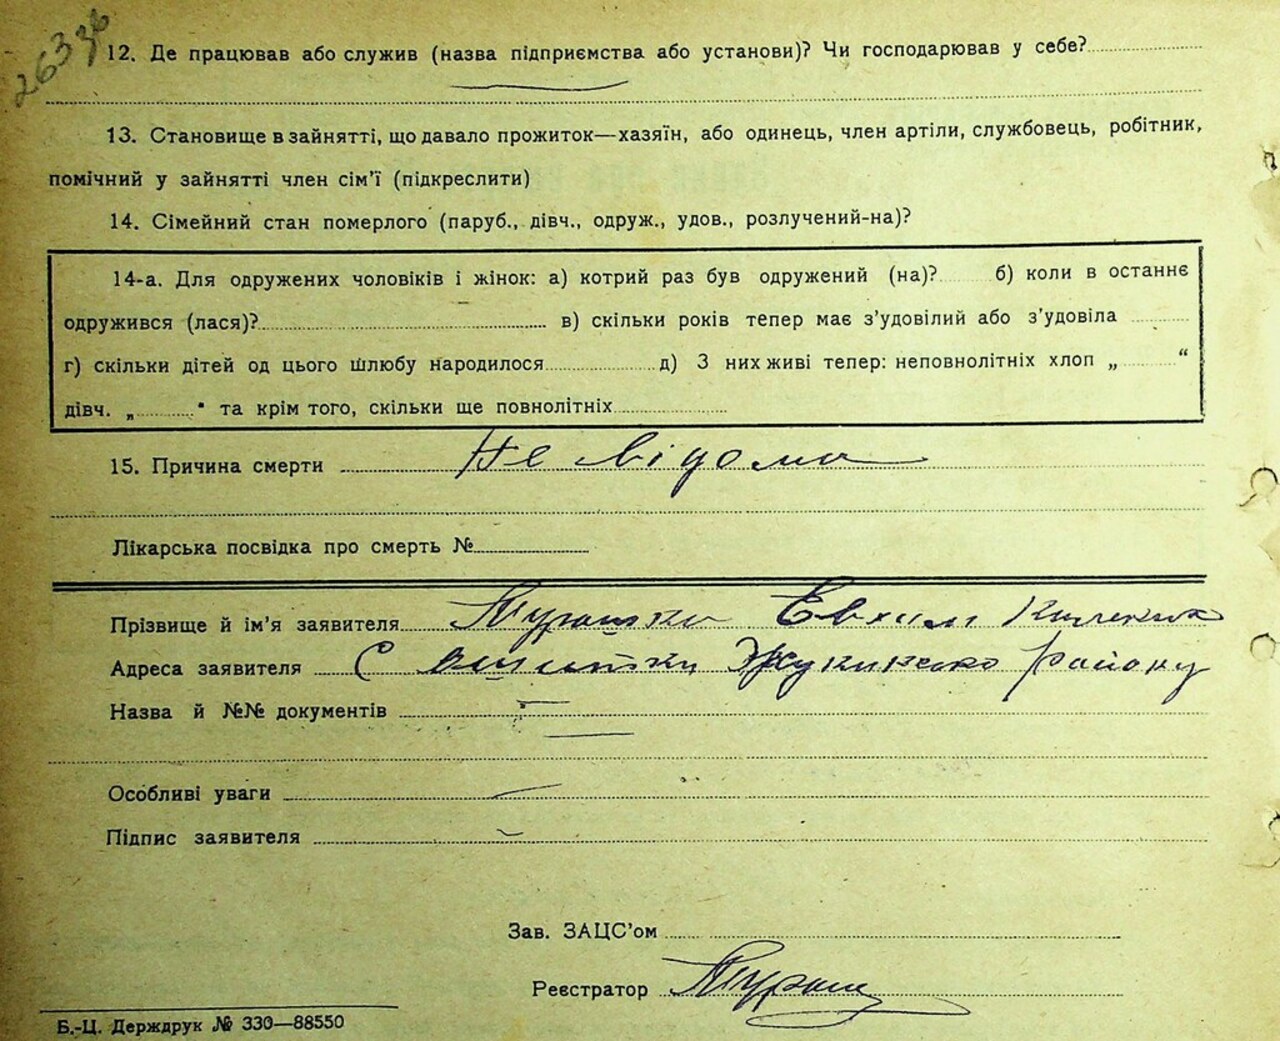 26336
12. Де працював або служив (назва підприємства або установи)? Чи господарював у себе?
13. Становище в зайнятті, що давало прожиток—хазяїн, або одинець, член артіли, службовець, робітник,
помічний у зайнятті член сім'ї (підкреслити)
14. Сімейний стан померлого (паруб., дівч., одруж., удов., розлучений-на)?
14-а. Для одружених чоловіків і жінок: а) котрий раз був одружений (на)? б) коли в останнє
одружився (лася)? в) скільки років тепер має з'удовілий або з'удовіла
г) скільки дітей од цього шлюбу народилося д) З них живі тепер: неповнолітніх хлоп „ “
дівч. „ " та крім того, скільки ще повнолітніх
15. Причина смерти Не відома
Лікарська посвідка про смерть №
Прізвище й ім'я заявителя Мурашко Евхим
Адреса заявителя С Жукинсько району
Назва й №№ документів
Особливі уваги
Підпис заявителя
Зав. ЗАЦС'ом
Реєстратор
Б.-Ц. Держдрук № 330—88550